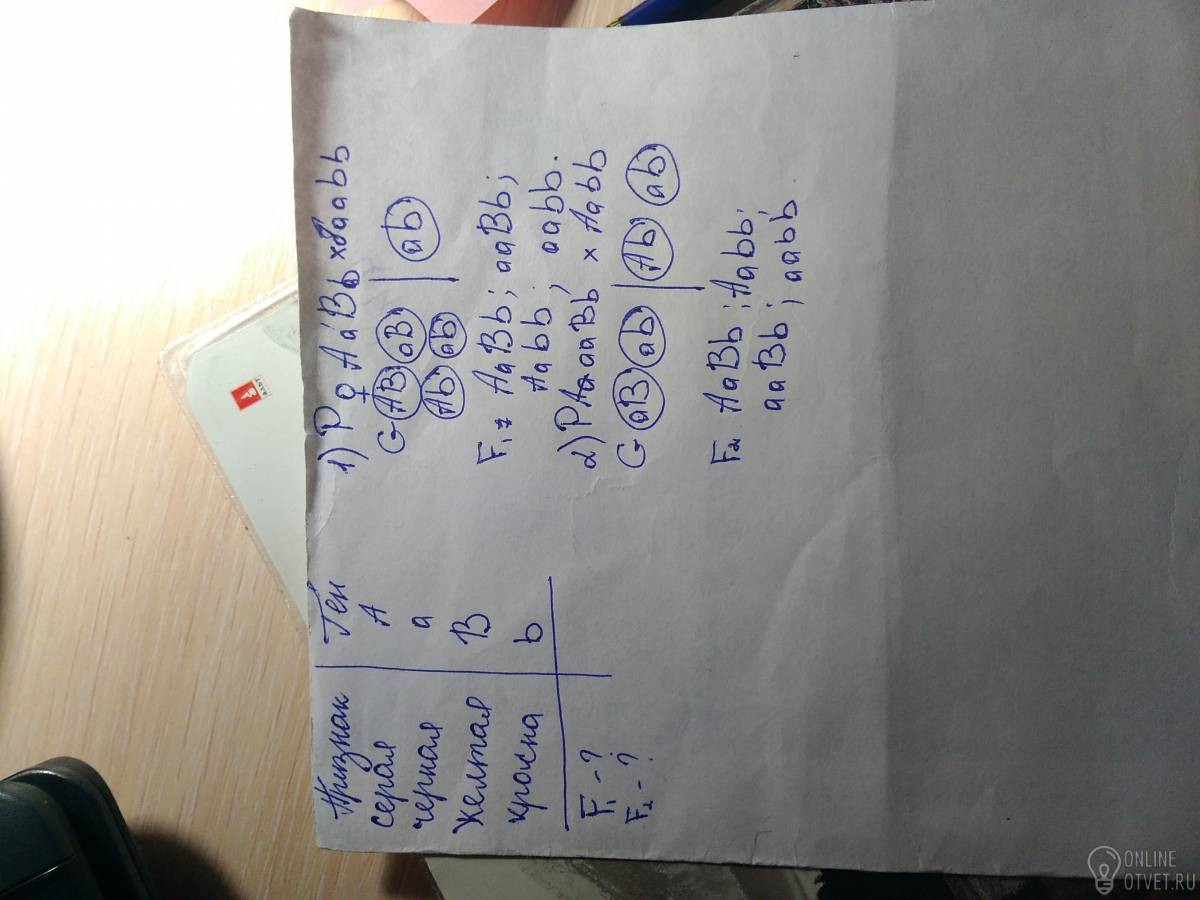 Признак | Ген
серая A
черная a
Желтая B
красна b
F₁ - ?
F₂ - ?
1) P ♀ AaBb x ♂ aabb
G AB aB | ab
Ab ab
F₁ = AaBb; aaBb;
Aabb; aabb.
2) P aaBb x Aabb
G aB ab | Ab ab
F₂ AaBb; Aabb;
aaBb; aabb.
ONLINE
OTVET.RU